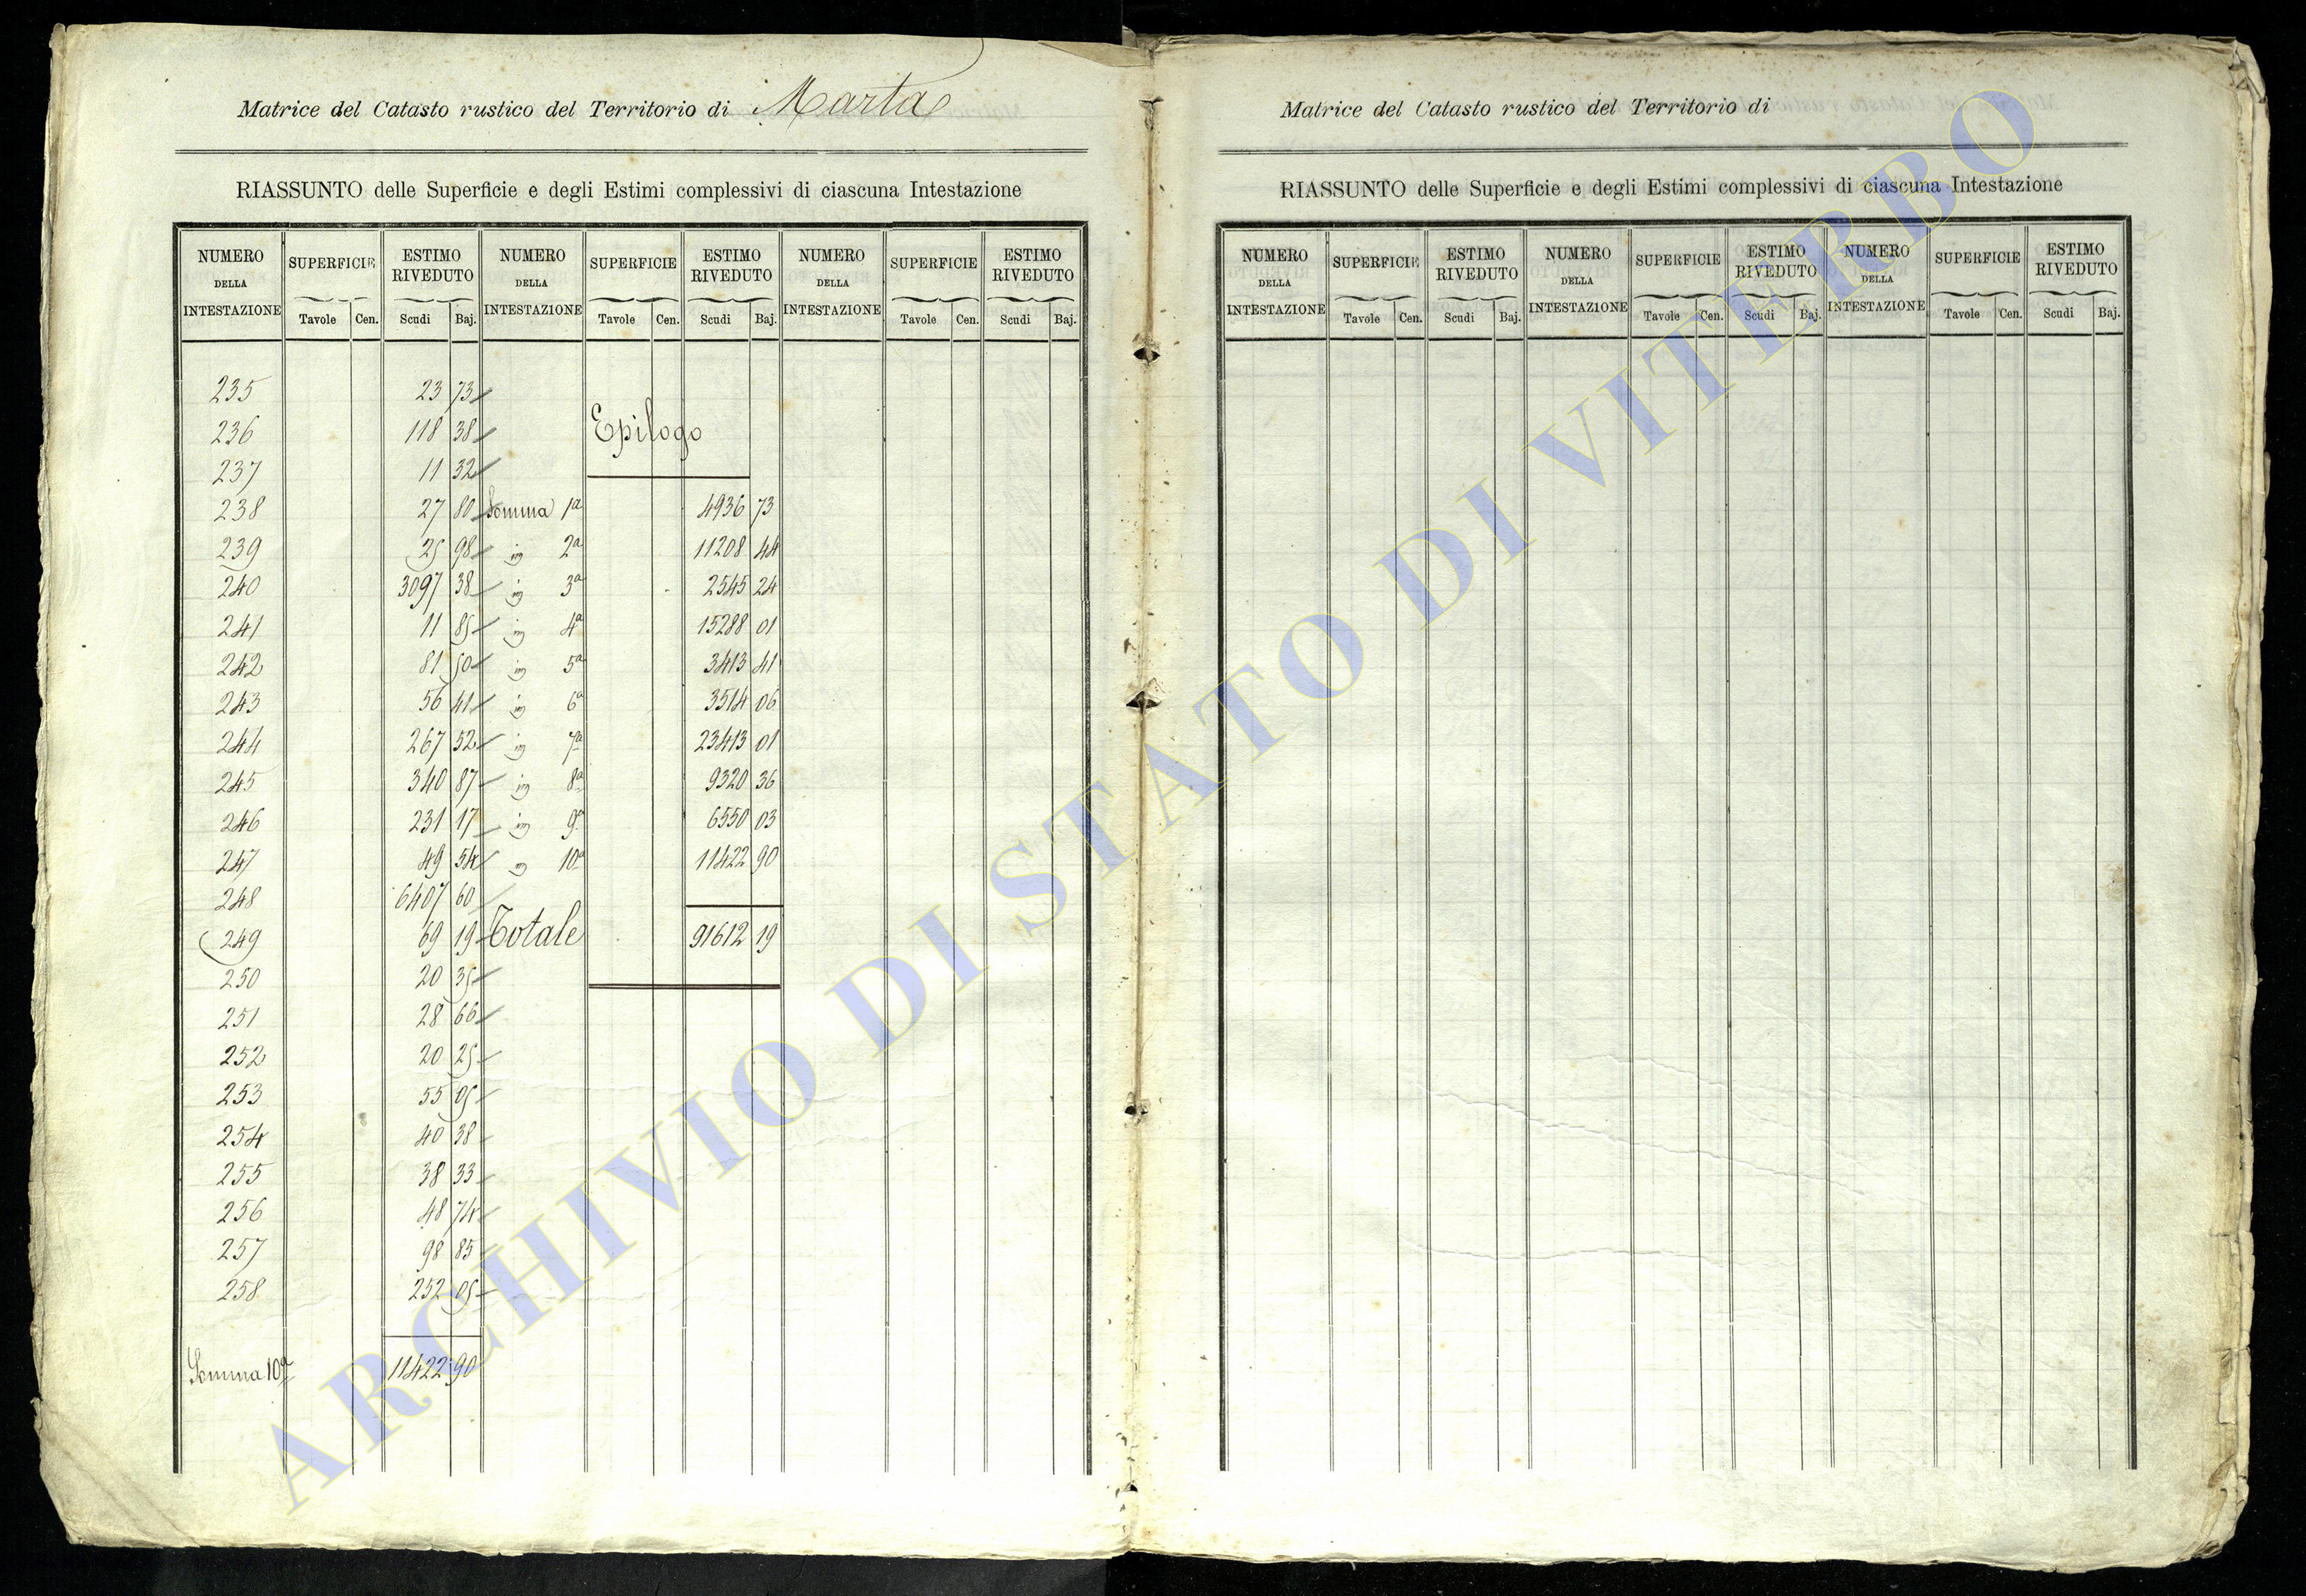 Matrice del Catasto rustico del Territorio di Marta
RIASSUNTO delle Superficie e degli Estimi complessivi di ciascuna Intestazione
NUMERO DELLA INTESTAZIONE SUPERFICIE Tavole Cen. ESTIMO RIVEDUTO Scudi Baj. NUMERO DELLA INTESTAZIONE SUPERFICIE Tavole Cen. ESTIMO RIVEDUTO Scudi Baj. NUMERO DELLA INTESTAZIONE SUPERFICIE Tavole Cen. ESTIMO RIVEDUTO Scudi Baj.
235 23 73
236 118 38
237 11 32
238 27 80
239 25 98
240 3097 38
241 11 85
242 81 50
243 56 41
244 267 52
245 340 87
246 231 17
247 49 54
248 6407 60
249 69 19
250 20 35
251 28 66
252 20 25
253 55 05
254 40 38
255 38 33
256 48 74
257 98 85
258 252 05
Somma 10a 11422 90
Epilogo
Somma 1a 4936 73
2a 11208 44
3a 2545 24
4a 15288 01
5a 3413 41
6a 3514 06
7a 23413 01
8a 9320 36
9a 6550 03
10a 11422 90
Totale 91612 19
Matrice del Catasto rustico del Territorio di
RIASSUNTO delle Superficie e degli Estimi complessivi di ciascuna Intestazione
NUMERO DELLA INTESTAZIONE SUPERFICIE Tavole Cen. ESTIMO RIVEDUTO Scudi Baj. NUMERO DELLA INTESTAZIONE SUPERFICIE Tavole Cen. ESTIMO RIVEDUTO Scudi Baj. NUMERO DELLA INTESTAZIONE SUPERFICIE Tavole Cen. ESTIMO RIVEDUTO Scudi Baj.
ARCHIVIO DI STATO DI VITERBO